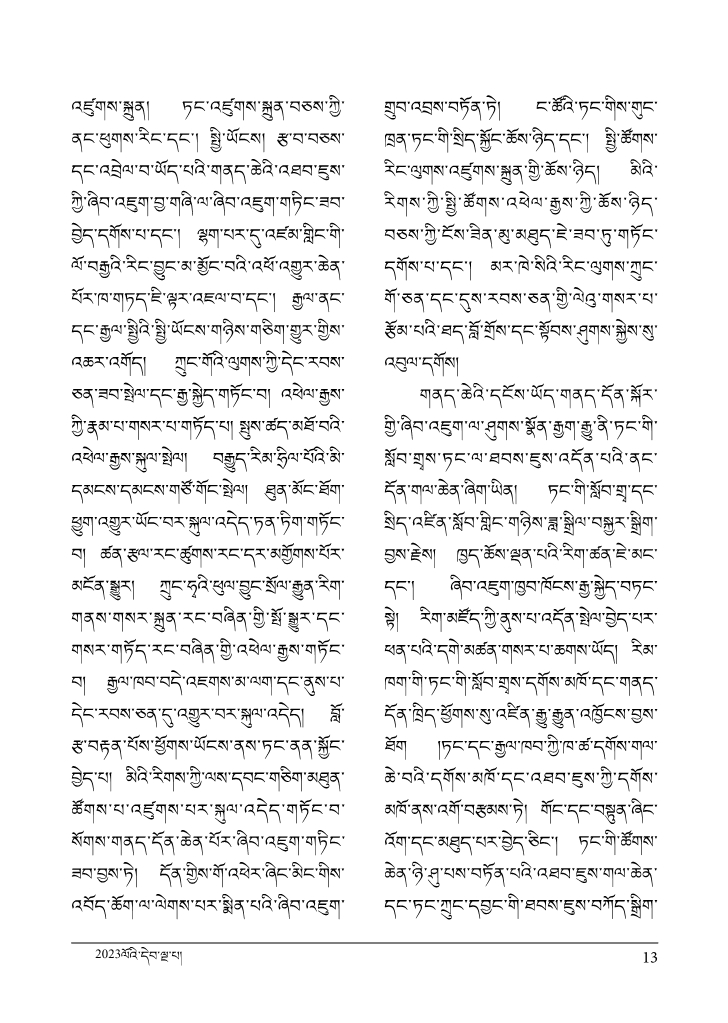 འཛུགས་སྐྲུན། ཏང་འཛུགས་སྐྲུན་བཅས་ཀྱི་
ནང་ཕུགས་རིང་དང་། སྤྱི་ཡོངས། རྩ་བ་བཅས་
དང་འབྲེལ་བ་ཡོད་པའི་གནད་ཆེའི་འཐབ་ཇུས་
ཀྱི་ཞིབ་འཇུག་བྱ་གཞི་ལ་ཞིབ་འཇུག་གཏིང་ཟབ་
བྱེད་དགོས་པ་དང་། ལྷག་པར་དུ་འཛམ་གླིང་གི་
ལོ་བརྒྱའི་རིང་བྱུང་མ་མྱོང་བའི་འཕོ་འགྱུར་ཆེན་
པོར་ཁ་གཏད་ཇི་ལྟར་འཇལ་བ་དང་། རྒྱལ་ནང་
དང་རྒྱལ་སྤྱིའི་སྤྱི་ཡོངས་གཉིས་གཅིག་གྱུར་གྱིས་
འཆར་འགོད། ཀྲུང་གོའི་ལུགས་ཀྱི་དེང་རབས་
ཅན་ཟབ་སྤེལ་དང་རྒྱ་སྐྱེད་གཏོང་བ། འཕེལ་རྒྱས་
ཀྱི་རྣམ་པ་གསར་པ་གཏོད་པ། སྤུས་ཚད་མཐོ་བའི་
འཕེལ་རྒྱས་སྐུལ་སྤེལ། བརྒྱུད་རིམ་ཧྲིལ་པོའི་མི་
དམངས་དམངས་གཙོ་གོང་སྤེལ། ཐུན་མོང་ཐོག་
ཕྱུག་འགྱུར་ཡོང་བར་སྐུལ་འདེད་ཏན་ཏིག་གཏོང་
བ། ཚན་རྩལ་རང་ཚུགས་རང་དར་མགྱོགས་པོར་
མངོན་སྒྱུར། ཀྲུང་ཧྭའི་ཕུལ་བྱུང་སྲོལ་རྒྱུན་རིག་
གནས་གསར་སྐྲུན་རང་བཞིན་གྱི་སྤོ་སྒྱུར་དང་
གསར་གཏོད་རང་བཞིན་གྱི་འཕེལ་རྒྱས་གཏོང་
བ། རྒྱལ་ཁབ་བདེ་འཇགས་མ་ལག་དང་ནུས་པ་
དེང་རབས་ཅན་དུ་འགྱུར་བར་སྐུལ་འདེད། བློ་
རྩ་བརྟན་པོས་ཕྱོགས་ཡོངས་ནས་ཏང་ནན་སྐྱོང་
བྱེད་པ། མིའི་རིགས་ཀྱི་ལས་དབང་གཅིག་མཐུན་
ཚོགས་པ་འཛུགས་པར་སྐུལ་འདེད་གཏོང་བ་
སོགས་གནད་དོན་ཆེན་པོར་ཞིབ་འཇུག་གཏིང་
ཟབ་བྱས་ཏེ། དོན་གྱིས་གོ་འཕེར་ཞིང་མིང་གིས་
འབོད་ཆོག་ལ་ལེགས་པར་སྨིན་པའི་ཞིབ་འཇུག་
གྲུབ་འབྲས་བཏོན་ཏེ། ང་ཚོའི་ཏང་གིས་གུང་
ཁྲན་ཏང་གི་སྲིད་སྐྱོང་ཆོས་ཉིད་དང་། སྤྱི་ཚོགས་
རིང་ལུགས་འཛུགས་སྐྲུན་གྱི་ཆོས་ཉིད། མིའི་
རིགས་ཀྱི་སྤྱི་ཚོགས་འཕེལ་རྒྱས་ཀྱི་ཆོས་ཉིད་
བཅས་ཀྱི་ངོས་ཟིན་མུ་མཐུད་ཇེ་ཟབ་ཏུ་གཏོང་
དགོས་པ་དང་། མར་ཁེ་སིའི་རིང་ལུགས་ཀྲུང་
གོ་ཅན་དང་དུས་རབས་ཅན་གྱི་ལེའུ་གསར་པ་
རྩོམ་པའི་ཐད་བློ་གྲོས་དང་སྟོབས་ཤུགས་སྐྱེས་སུ་
འབུལ་དགོས།
གནད་ཆེའི་དངོས་ཡོད་གནད་དོན་སྐོར་
གྱི་ཞིབ་འཇུག་ལ་ཤུགས་སྣོན་རྒྱག་རྒྱུ་ནི་ཏང་གི་
སློབ་གྲྭས་ཏང་ལ་ཐབས་ཇུས་འདོན་པའི་ནང་
དོན་གལ་ཆེན་ཞིག་ཡིན། ཏང་གི་སློབ་གྲྭ་དང་
སྲིད་འཛིན་སློབ་གླིང་གཉིས་ཟླ་སྒྲིལ་བསྐྱར་སྒྲིག་
བྱས་རྗེས། ཁྱད་ཆོས་ལྡན་པའི་རིག་ཚན་ཇེ་མང་
དང་། ཞིབ་འཇུག་ཁྱབ་ཁོངས་རྒྱ་སྐྱེད་བཏང་
སྟེ། རིག་མཛོད་ཀྱི་ནུས་པ་འདོན་སྤེལ་བྱེད་པར་
ཕན་པའི་དགེ་མཚན་གསར་པ་ཆགས་ཡོད། རིམ་
ཁག་གི་ཏང་གི་སློབ་གྲྭས་དགོས་མཁོ་དང་གནད་
དོན་ཁྲིད་ཕྱོགས་སུ་འཛིན་རྒྱུ་རྒྱུན་འཁྱོངས་བྱས་
ཐོག །ཏང་དང་རྒྱལ་ཁབ་ཀྱི་ཁ་ཚ་དགོས་གལ་
ཆེ་བའི་དགོས་མཁོ་དང་འཐབ་ཇུས་ཀྱི་དགོས་
མཁོ་ནས་འགོ་བརྩམས་ཏེ། གོང་དང་བསྟུན་ཞིང་
འོག་དང་མཐུད་པར་བྱེད་ཅིང་། ཏང་གི་ཚོགས་
ཆེན་ཉི་ཤུ་པས་བཏོན་པའི་འཐབ་ཇུས་གལ་ཆེན་
དང་ཏང་ཀྲུང་དབྱང་གི་ཐབས་ཇུས་བཀོད་སྒྲིག་
2023ལོའི་དེབ་ལྔ་པ།
13